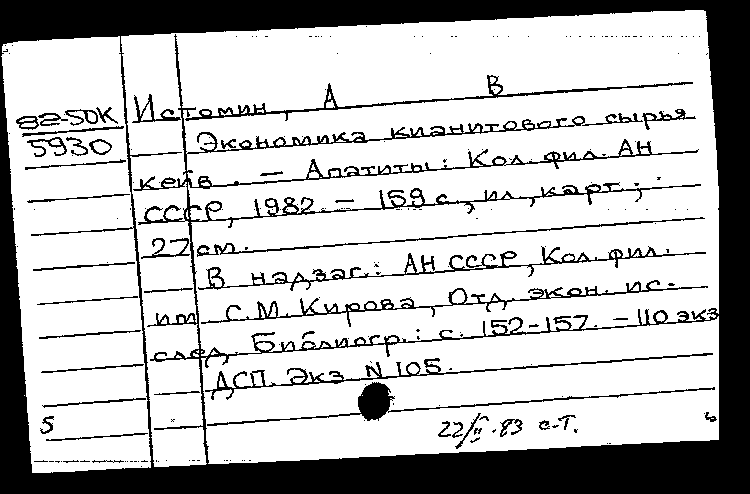 82-50К
5930
Истомин, А В
Экономика кианитового сырья
кейв. — Апатиты: Кол. фил. АН
СССР, 1982. — 159 с., ил., карт.;
22 см.
В надзаг.: АН СССР, Кол. фил.
им С.М. Кирова, Отд. экон. ис-
след. Библиогр.: с. 152-157. — 110 экз
ДСП. Экз N 105.
5
22/II.83 с.т.